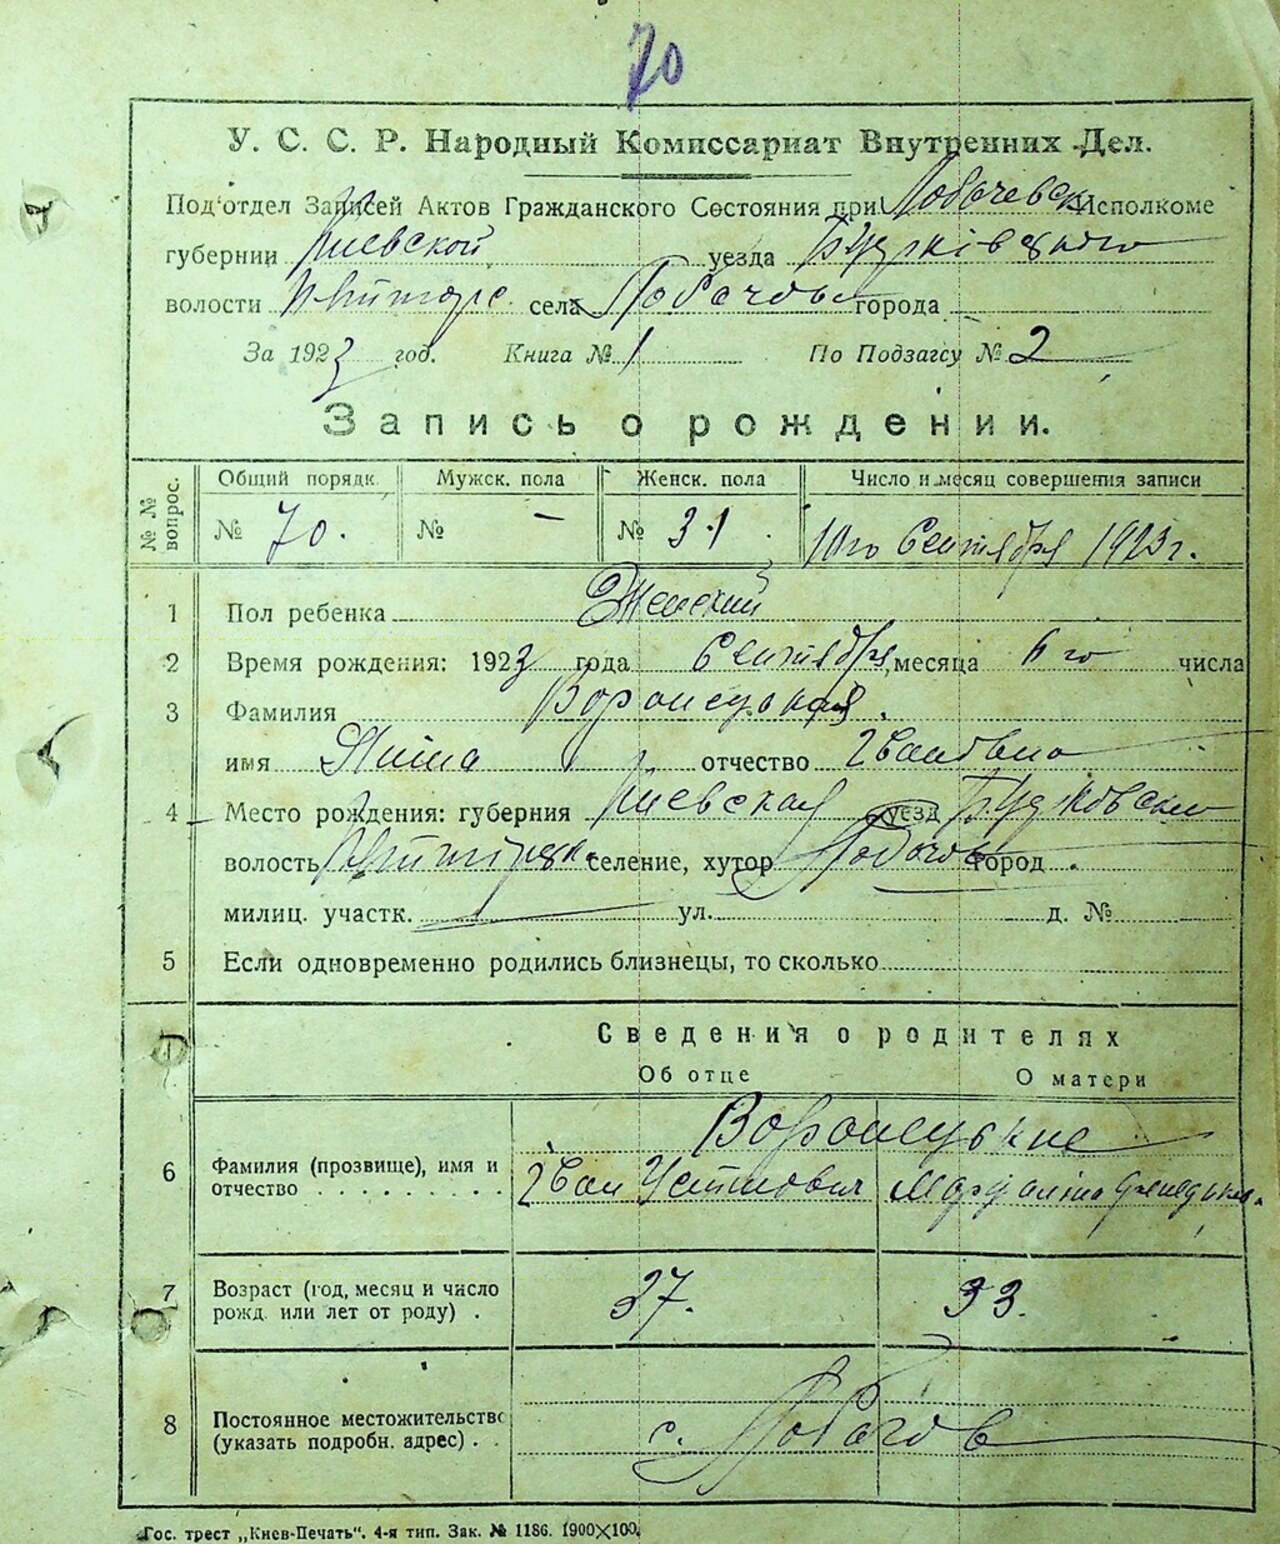 70
У. С. С. Р. Народный Комиссариат Внутренних Дел.
Под'отдел Записей Актов Гражданского Состояния при Исполкоме
губернии Киевской уезда
волости села города
За 1923 год. Книга № 1 По Подзагсу № 2
Запись о рождении.
№ № вопрос. Общий порядк. Мужск. пола Женск. пола Число и месяц совершения записи
№ 70. № – № 31 10го Сентября 1923 г.
1 Пол ребенка Женский
2 Время рождения: 1923 года Сентября месяца 6 го числа
3 Фамилия
имя отчество Ивановна
4 Место рождения: губерния Киевская уезд
волость селение, хутор город
милиц. участк. ул. д. №
5 Если одновременно родились близнецы, то сколько
Сведения о родителях
Об отце О матери
6 Фамилия (прозвище), имя и
отчество Иван
7 Возраст (год, месяц и число
рожд. или лет от роду) . 37. 33.
8 Постоянное местожительство
(указать подробн. адрес) . . с.
Гос. трест „Киев-Печать“. 4-я тип. Зак. № 1186. 1900×100.